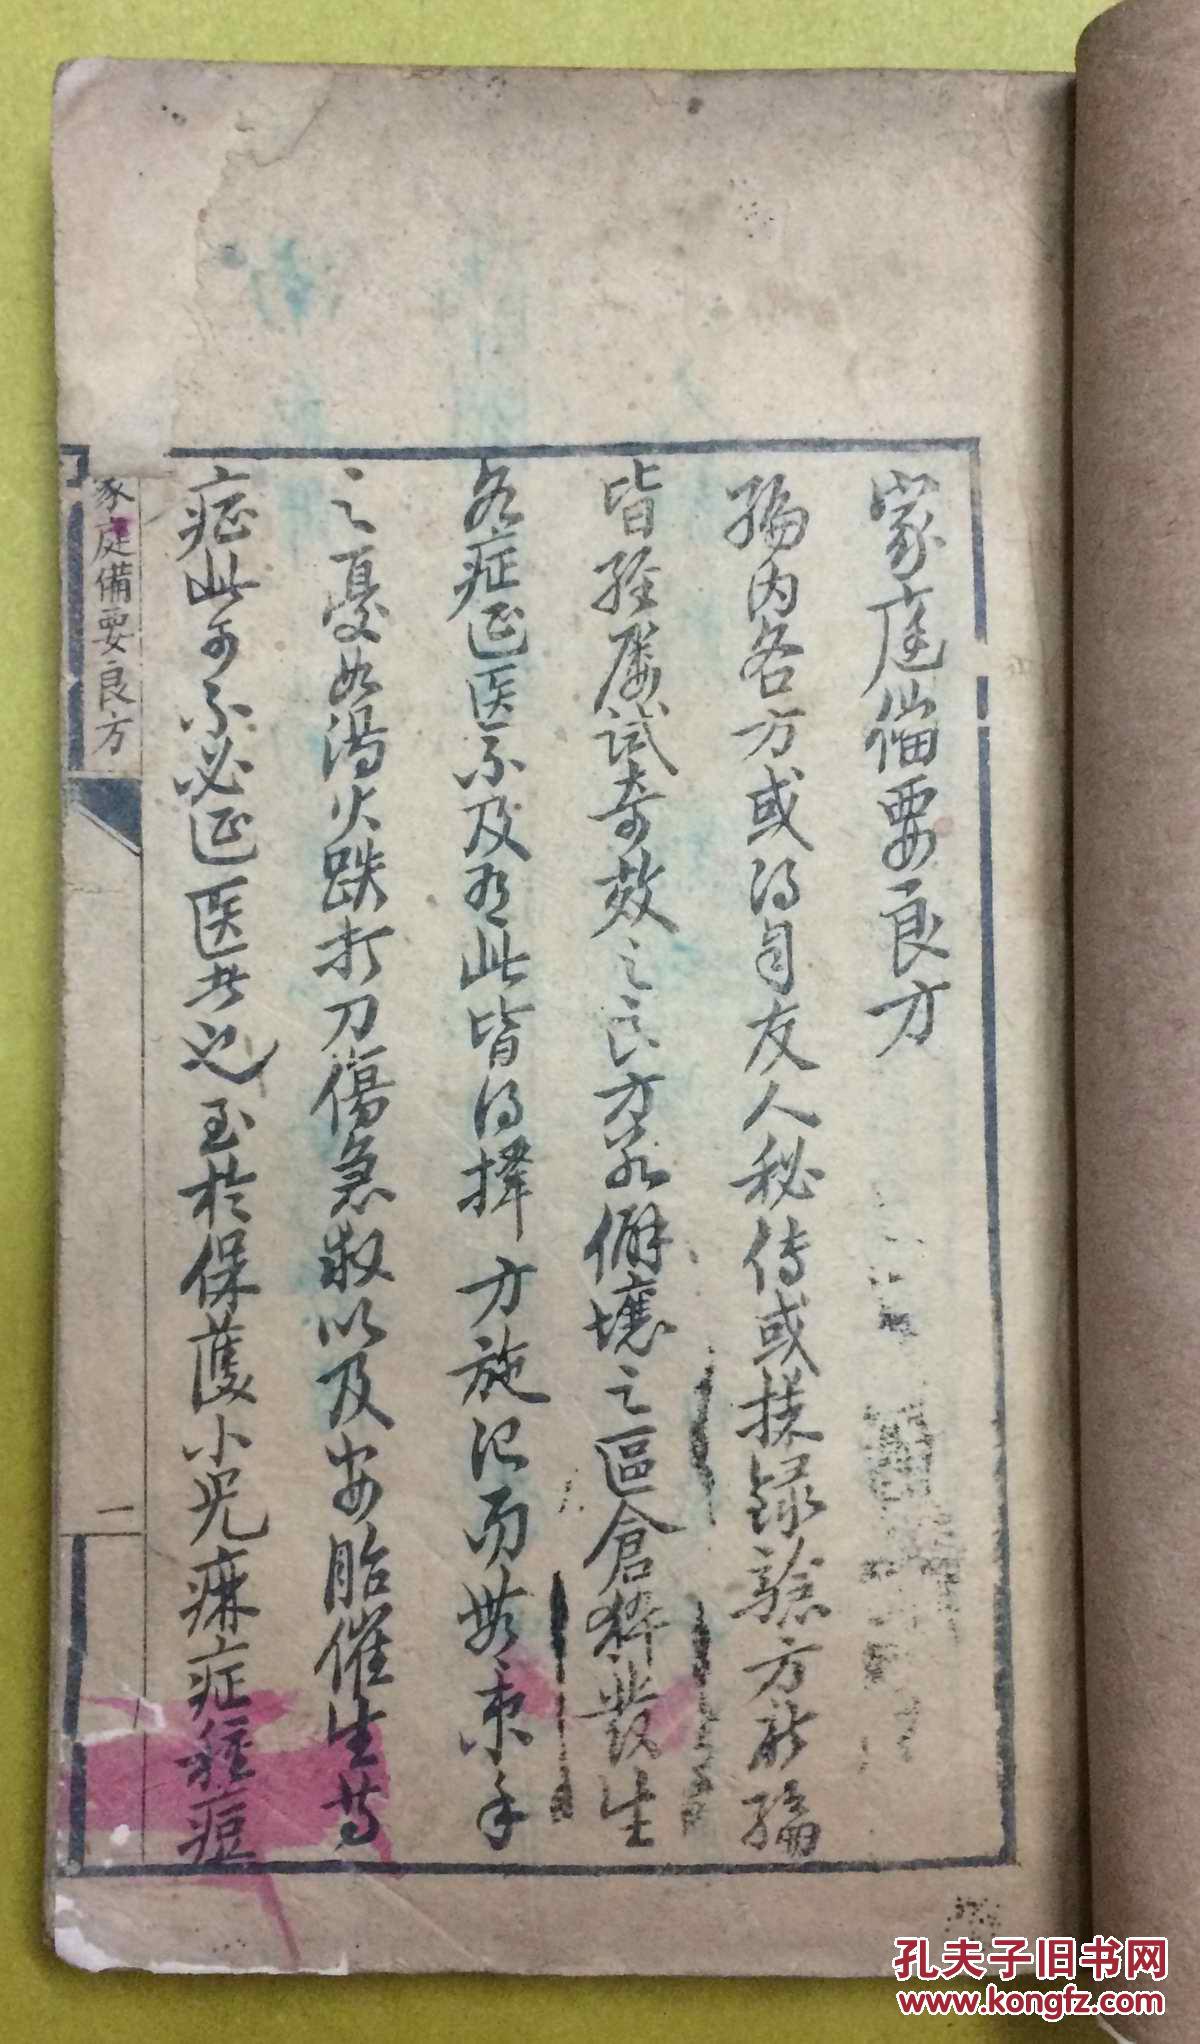 家庭備要良方
編内各方或得自友人秘传或採録驗方新編
皆經屡試奇效之良方若僻壤之區倉猝發生
各症延医不及有此皆得擇方施治而無束手
之憂如湯火跌打刀傷急救以及安胎催生等
症此可不必延医者也至於保護小児痳症痘
家庭備要良方
一
孔夫子旧书网
www.kongfz.com